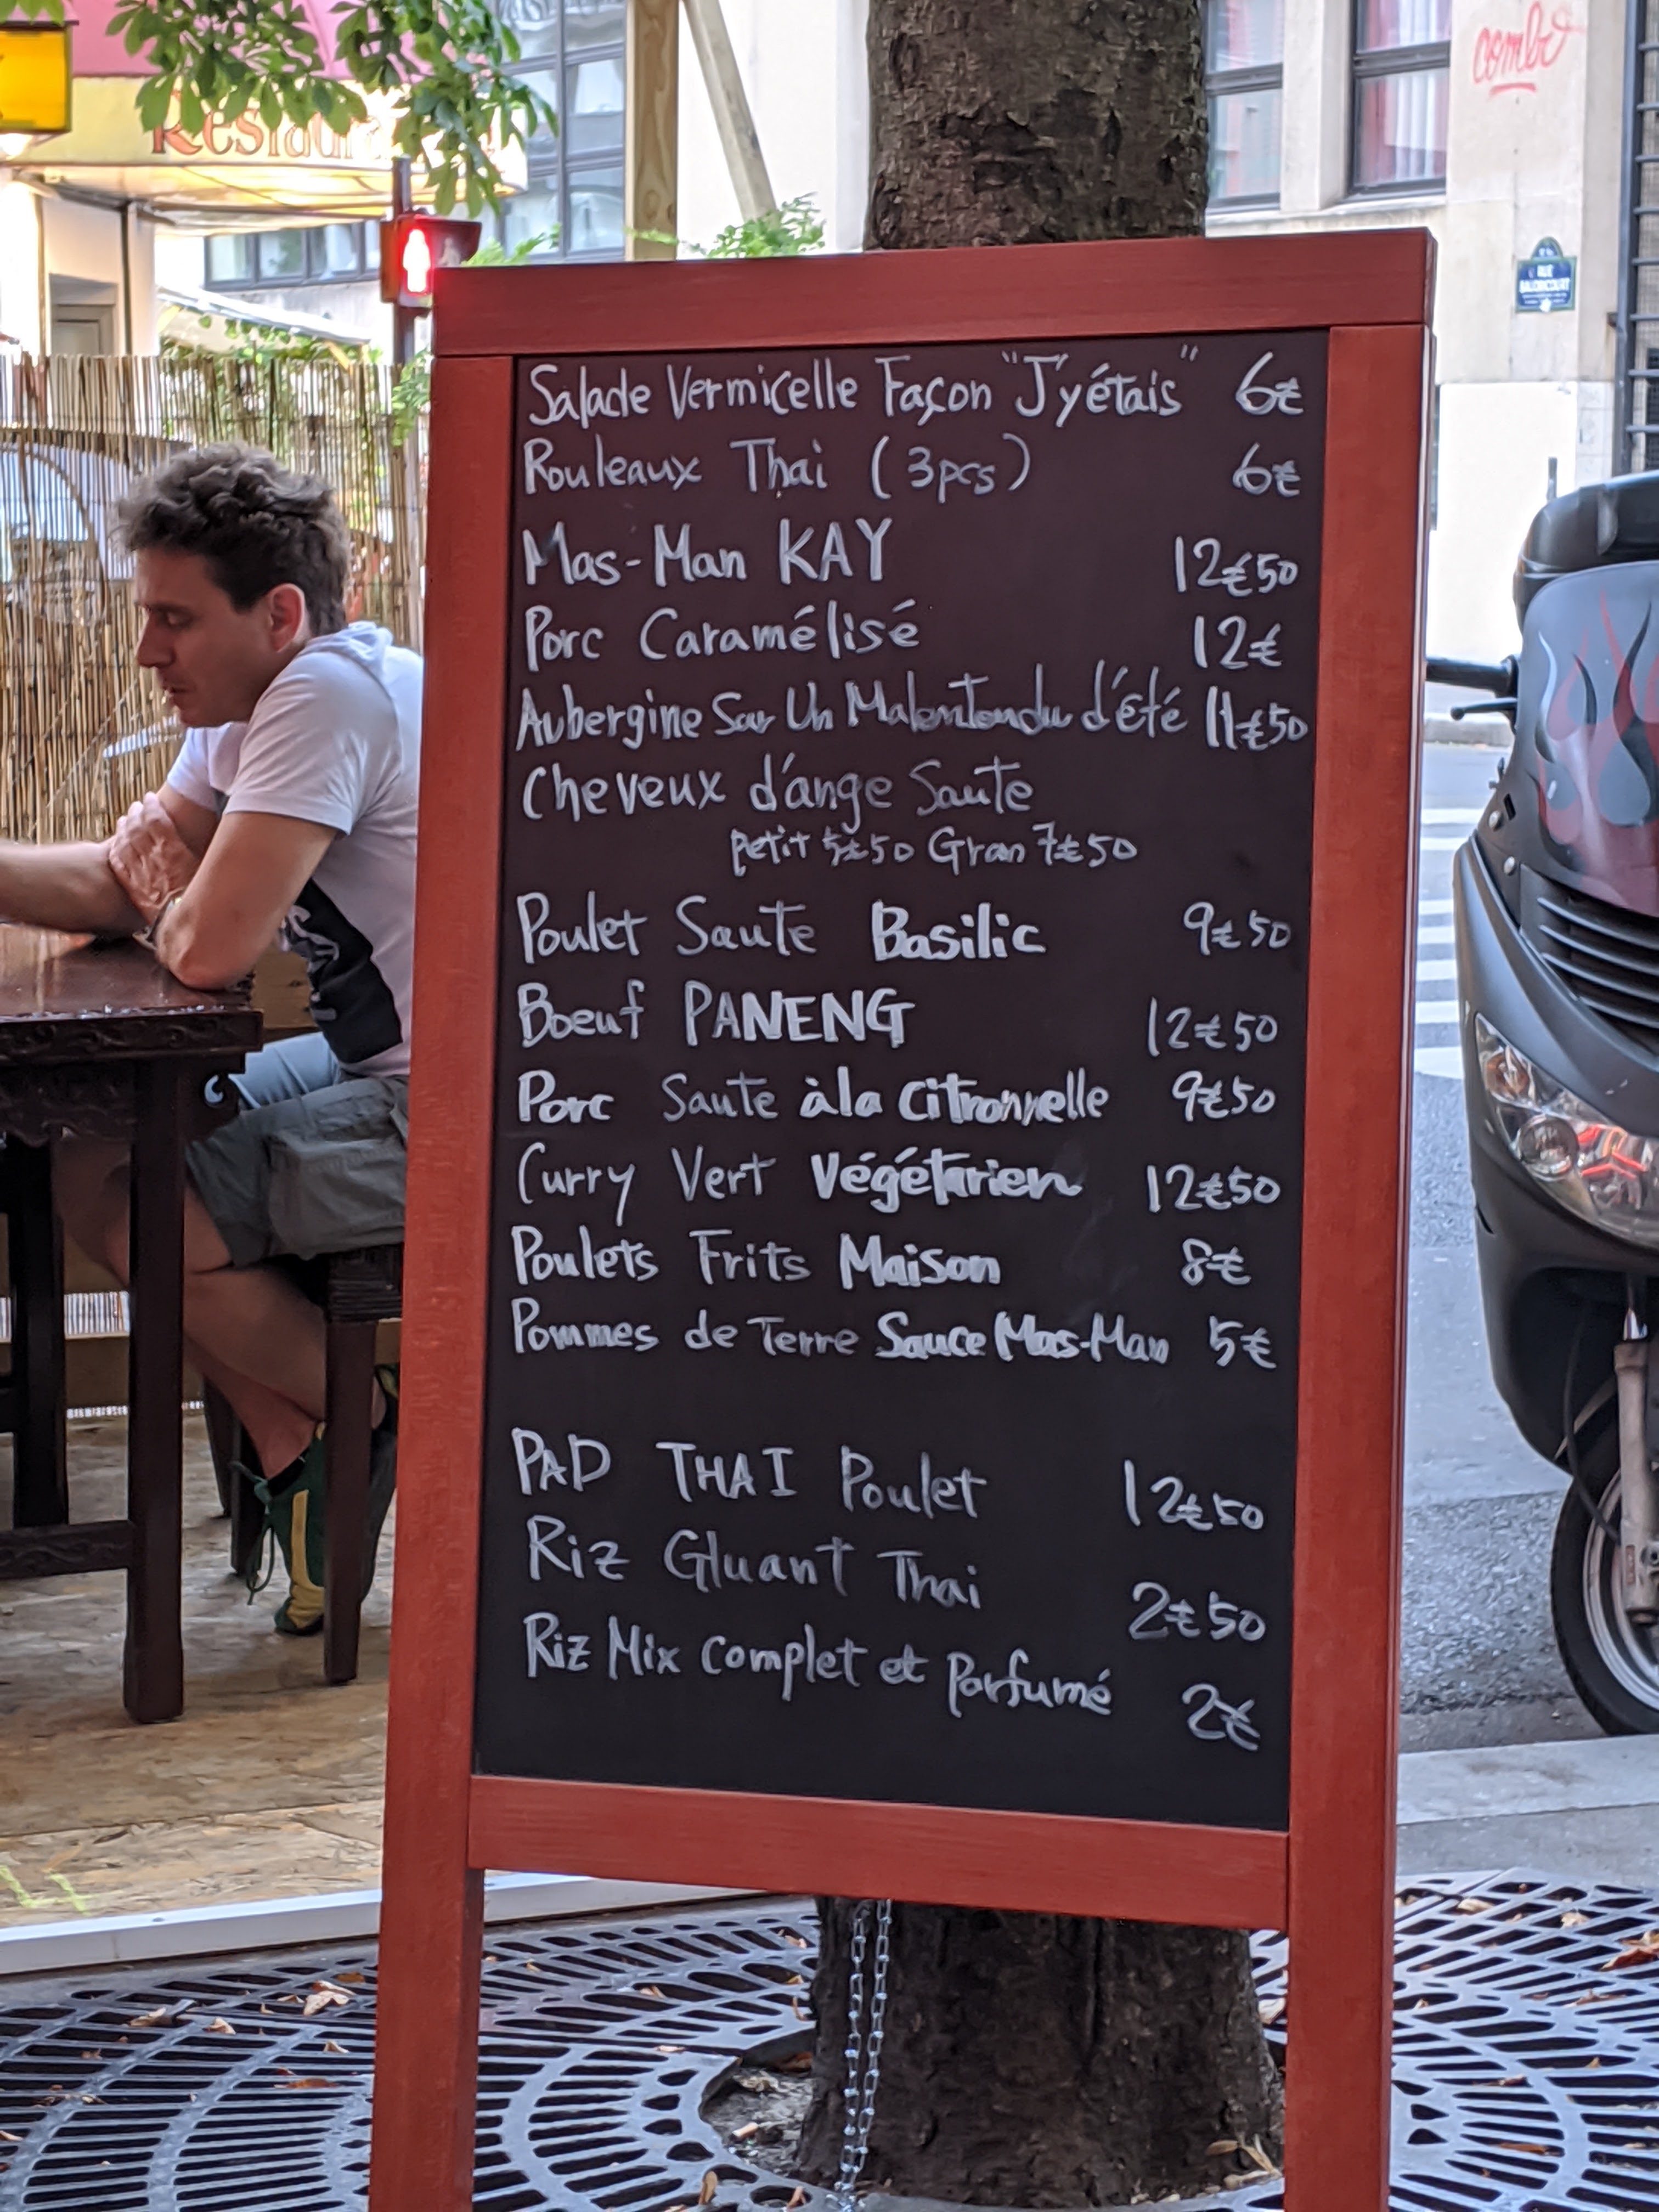 Restaura
combo
RUE
BALDRICOURT
Salade Vermicelle Façon "J'yétais" 6€
Rouleaux Thai (3pcs) 6€
Mas-Man KAY 12€50
Porc Caramélisé 12€
Aubergine Sur Un Malentendu d'été 11€50
Cheveux d'ange Saute
petit 5€50 Gran 7€50
Poulet Saute Basilic 9€50
Boeuf PANENG 12€50
Porc Saute à la Citronnelle 9€50
Curry Vert Végétarien 12€50
Poulets Frits Maison 8€
Pommes de Terre Sauce Mas-Man 5€
PAD THAI Poulet 12€50
Riz Gluant Thai 2€50
Riz Mix Complet et Parfumé 2€